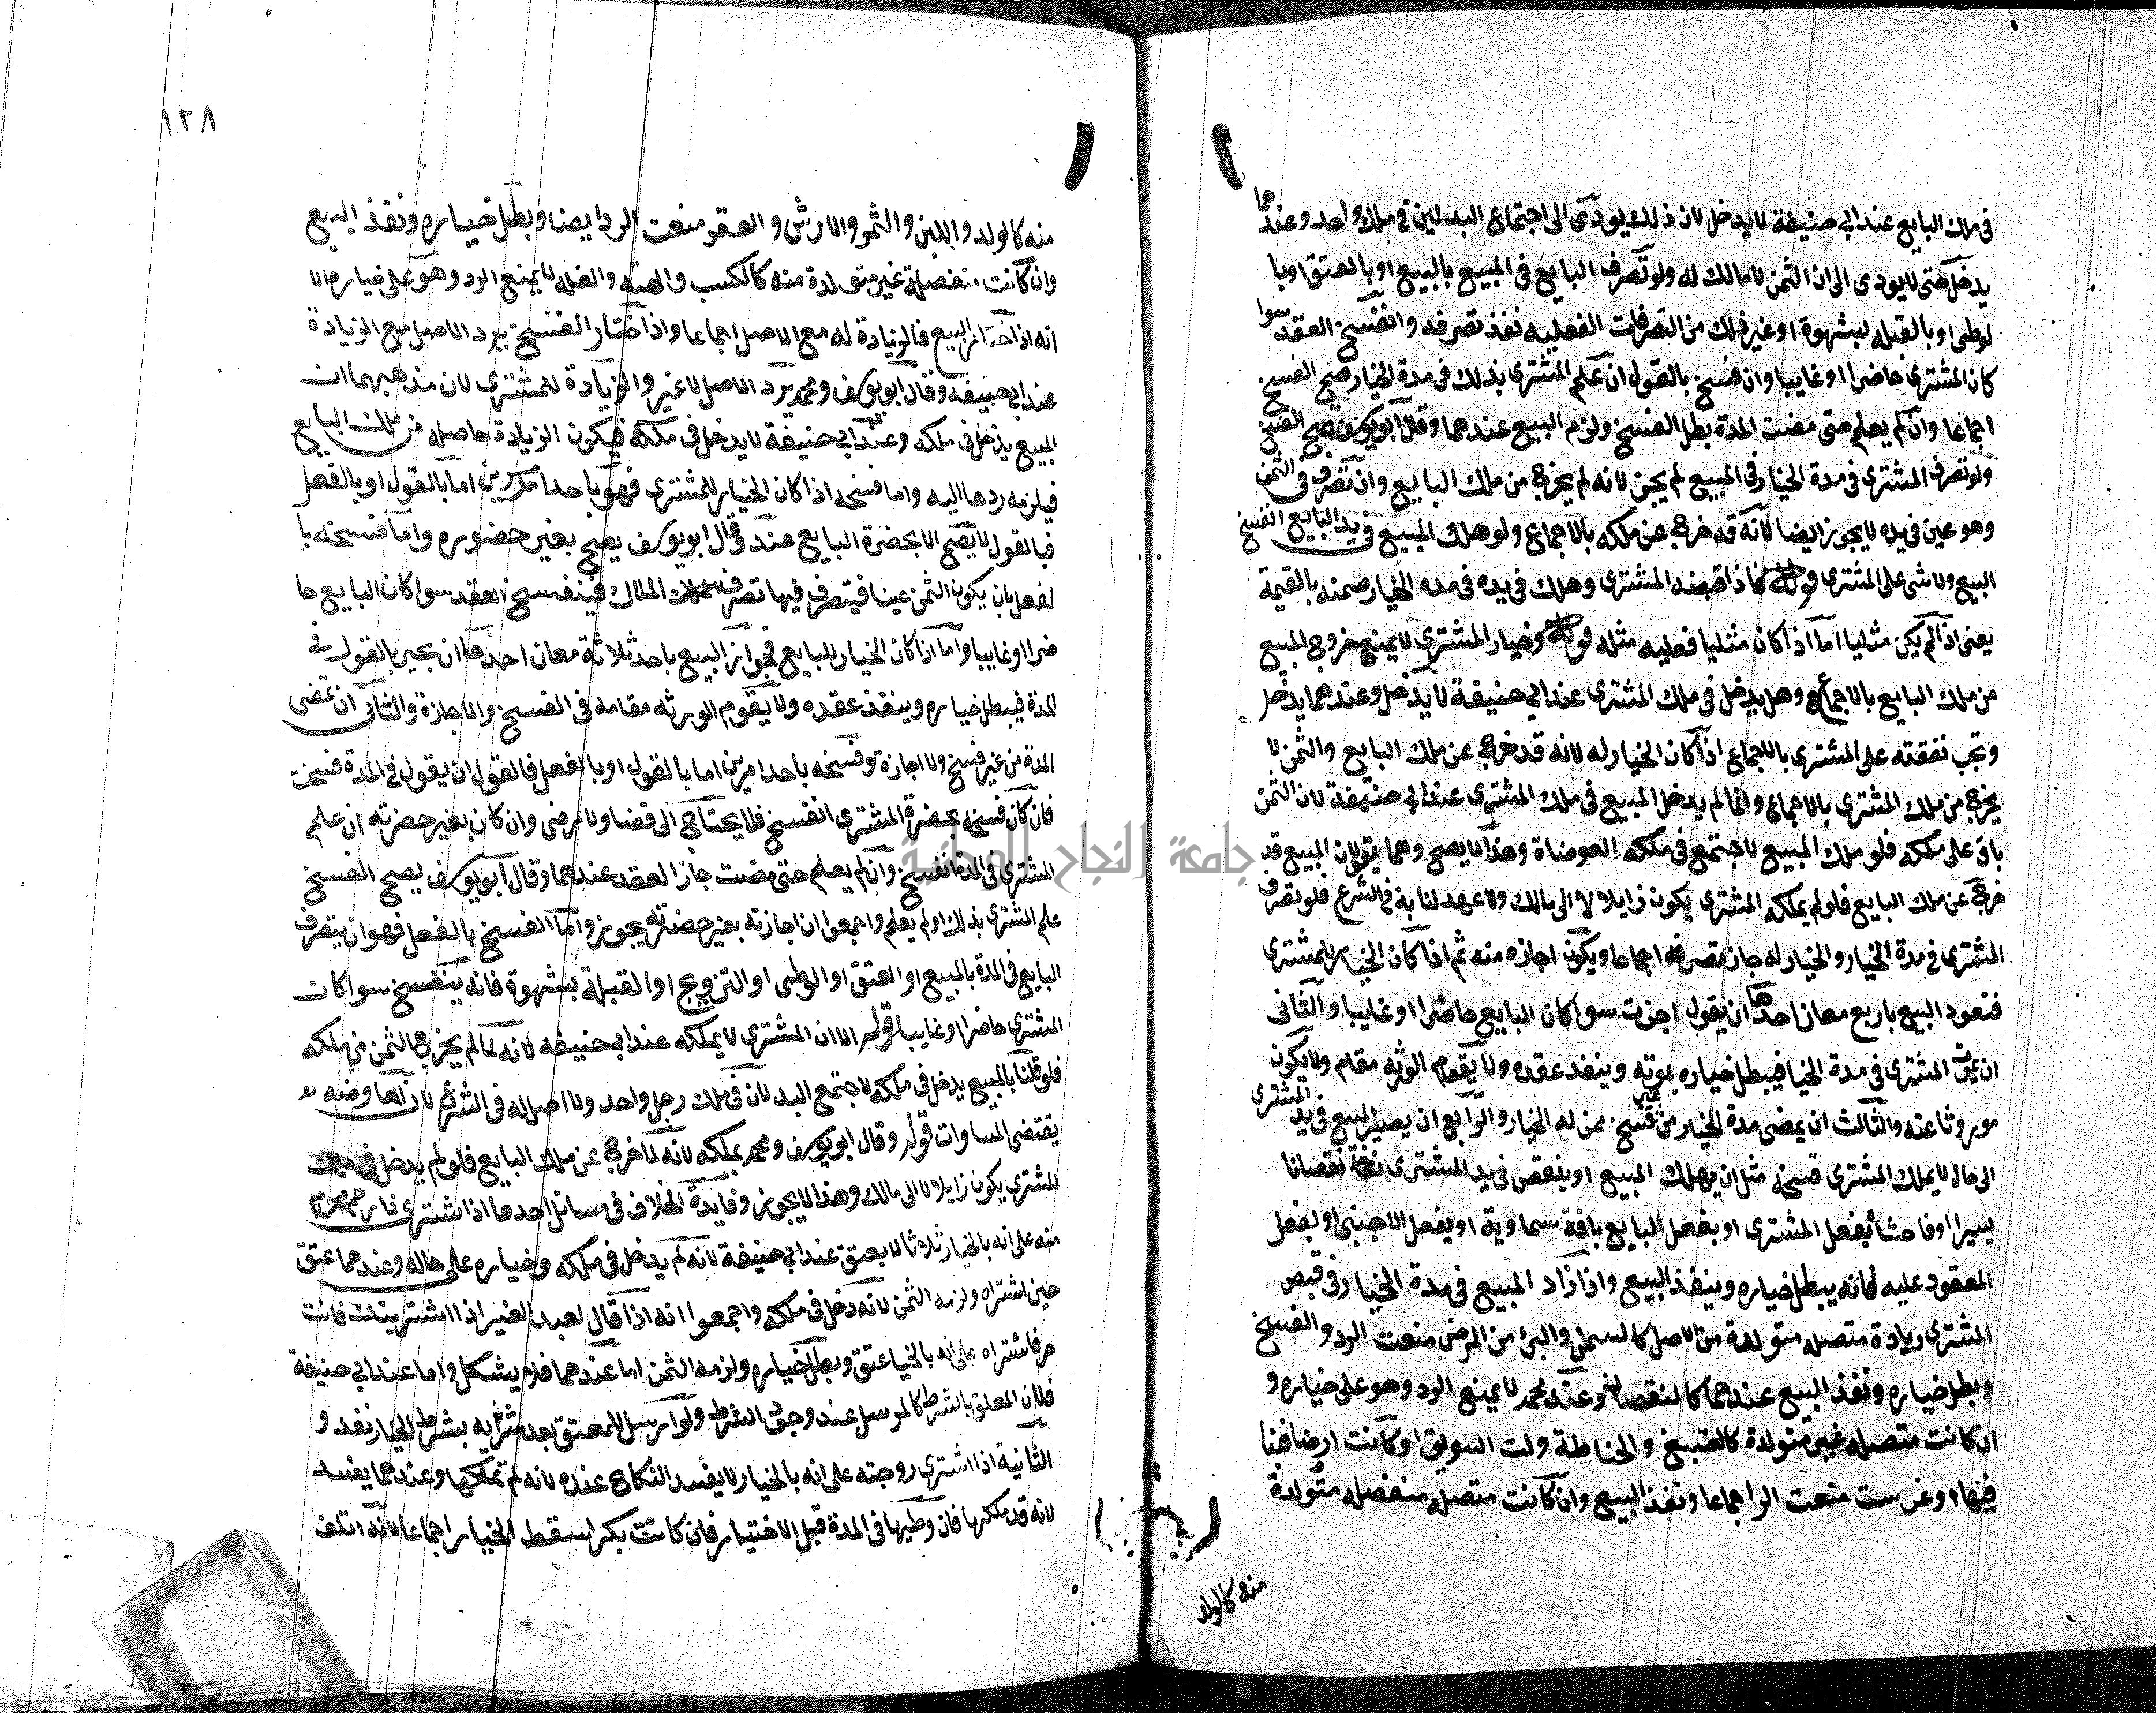 في ملك البايع عند ابي حنيفة لا يدخل لان ذلك يودى الى اجتماع البدلين في ملك واحد وعندهما
يدخل حتى لا يودى الى ان الثمن لا مالك له ولو تصرف البايع في المبيع بالبيع او بالعتق او با
لوطى او بالقبله بشهوة او غير ذلك من التصرفات الفعليه نفذ تصرفه وانفسخ العقد سوا
كان المشترى حاضرا او غايبا وان فسخ بالقول ان علم المشترى بذلك في مدة الخيار صح الفسخ
اجماعا وان لم يعلم حتى مضت المدة بطل الفسخ ولزم البيع عندهما وقال ابو يوسف صح الفسخ
ولو تصرف المشترى في مدة الخيار في المبيع لم يجز لانه لم يخرج من ملك البايع وان تصرف في الثمن
وهو عين في يده لا يجوز ايضا لانه قد خرج عن ملكه بالاجماع ولو هلك المبيع في يد البايع انفسخ
البيع ولا شى على المشترى قوله فاذا قبضه المشترى وهلك في يده في مده الخيار ضمنه بالقيمة
يعنى اذا لم يكن مثليا اما اذا كان مثليا فعليه مثله قوله وخيار المشترى لا يمنع خروج المبيع
من ملك البايع بالاجماع وهل يدخل في ملك المشترى عند ابي حنيفة لا يدخل وعندهما يدخل
وتجب نفقته على المشترى بالاجماع اذا كان الخيار له لانه قد خرج عن ملك البايع والثمن لا
يخرج من ملك المشترى بالاجماع وانما لم يدخل المبيع في ملك المشترى عند ابي حنيفة لان الثمن
باقى على ملكه فلو ملك المبيع لاجتمع في ملكه العوضان وهذا لا يصح وهما يقولان المبيع قد
خرج عن ملك البايع فلو لم يملكه المشترى يكون زايلا لا الى مالك ولا عهد لنا به في الشرع فلو تصرف
المشترى في مدة الخيار والخيار له جاز تصرفه اجماعا ويكون اجازه منه ثم اذا كان الخيار للمشترى
فنعود البيع باربع معان احدها ان يقول اجزت سوا كان البايع حاضرا او غايبا والثانى
ان يموت المشترى في مدة الخيا فيبطل خياره بموته وينفذ عقده ولا يقوم الورثه مقام ولا يكون
موروثا عنه والثالث ان يمضى مدة الخيار من غير فسخ ممن له الخيار والرابع ان يصير المبيع في يد المشترى
الى حال لا يملك المشترى فسخه مثل ان يهلك المبيع او ينقص في يد المشترى نقصانا
يسيرا او فاحشا بفعل المشترى او بفعل البايع بافة سماوية او بفعل الاجنبى او بفعل
المعقود عليه فانه يبطل خياره وينفذ البيع واذا زاد المبيع في مدة الخيار في قبض
المشترى زيادة متصله متولدة من الاصل كالسمن والبرئ من المرض منعت الرد والفسخ
وبطل خياره ونفذ البيع عندهما كالنقصان وعند محمد لا يمنع الرد وهو على خياره و
ان كانت متصله غير متولدة كالصبغ والخياطة ولت السويق او كانت ارضا فبنا
فيها او غرست منعت الرد اجماعا ونفذ البيع وان كانت متصله منفصله متولدة
منه كالولد
١٢٨
منه كالولد واللبن والثمر والارش والعقر منعت الرد ايضا وبطل خياره ونفذ البيع
وان كانت منفصلة غير متولدة منه كالكسب والهبة والغله لا يمنع الرد وهو على خياره الا
انه اذا اختار البيع فالزيادة له مع الاصل اجماعا واذا اختار الفسخ يرد الاصل مع الزيادة
عند ابي حنيفه وقال ابو يوسف ومحمد يرد الاصل لا غير والزيادة للمشترى لان مذهبهما ان
المبيع يدخل في ملكه وعند ابي حنيفة لا يدخل في ملكه فيكون الزيادة حاصله من ملك البايع
فيلزمه ردها اليه واما فسخه اذا كان الخيار للمشترى فهو باحد امرين اما بالقول او بالفعل
فبالقول لا يصح الا بحضرة البايع عند وقال ابو يوسف يصح بغير حضوره واما فسخه با
لفعل بان يكون الثمن عينا فيتصرف فيها تصرف الملاك فينفسخ العقد سوا كان البايع حا
ضرا او غايبا واما اذا كان الخيار للبايع فجواز البيع باحد ثلاثة معان احدها ان يجيز بالقول في
المدة فيبطل خياره وينفذ عقده ولا يقوم الورثه مقامه في الفسخ والاجازة والثانى ان تمضى
المدة من غير فسخ ولا اجازة وفسخه باحد امرين اما بالقول او بالفعل فالقول ان يقول في المدة فسخت
فان كان فسخه بحضرة المشترى انفسخ فلا يحتاج الى قضا ولا رضى وان كان بغير حضرته ان علم
المشترى في المدة انفسخ وان لم يعلم حتى مضت جاز العقد عندهما وقال ابو يوسف يصح الفسخ
علم المشترى بذلك او لم يعلم واجمعوا ان اجازته بغير حضرته يجوز واما الفسخ بالفعل فهو ان يتصرف
البايع في المدة بالبيع او العتق او الوطى او التزويج او القبلة بشهوة فانه ينفسخ سوا كان
المشترى حاضرا او غايبا قوله الا ان المشترى لا يملكه عند ابي حنيفه لانه لما لم يخرج الثمن من ملكه
فلو قلنا بالمبيع يدخل في ملكه لاجتمع البدلان في ملك رجل واحد ولا اصل له في الشرع لان المعاوضه
يقتضى المساوات قوله وقال ابو يوسف ومحمد يملكه لانه لما خرج عن ملك البايع فلو لم يدخل في ملك
المشترى يكون زايلا لا الى مالك وهذا لا يجوز وفايدة الخلاف في مسائل احدها اذا اشترى ذا رحم محرم
منه على انه بالخيار ثلاثا لا يعتق عند ابي حنيفة لانه لم يدخل في ملكه وخياره على حاله وعندهما عتق
حين اشتراه ولزمه الثمن لانه دخل في ملكه واجمعوا انه اذا قال لعبد الغير اذا اشتريتك فانت
حر فاشتراه على انه بالخيا عتق وبطل خياره ولزمه الثمن اما عندهما فلا يشكل واما عند ابي حنيفة
فلان المعلق بالشرط كالمرسل عند وجود الشرط ولو ارسل المعتق بعد شرايه بشرط الخيار نفذ و
الثانية اذا اشترى زوجته على انه بالخيار لا يفسد النكاح عنده لانه لم تملكها وعندهما يفسد
لانه قد ملكها فان وطيها في المدة قبل الاختيار فان كانت بكرا سقط الخيار اجماعا لانه اتلف
جامعة النجاح الوطنية